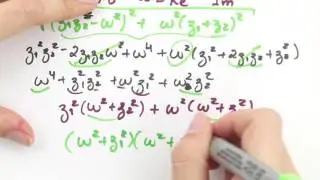 (z₁z₂-ω²)² + ω²(z₁+z₂)²
z₁²z₂²-2z₁z₂ω²+ω⁴+ω²(z₁²+2z₁z₂+z₂²)
ω⁴+z₁²z₂²+ω²z₁²+ω²z₂²
z₁²(ω²+z₂²)+ω²(ω²+z₂²)
(ω²+z₁²)(ω²+